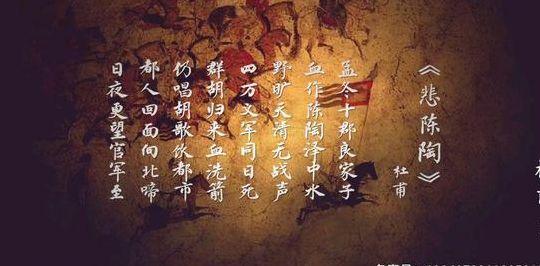 《悲陈陶》
杜甫
孟冬十郡良家子
血作陈陶泽中水
野旷天清无战声
四万义军同日死
群胡归来血洗箭
仍唱胡歌饮都市
都人回面向北啼
日夜更望官军至